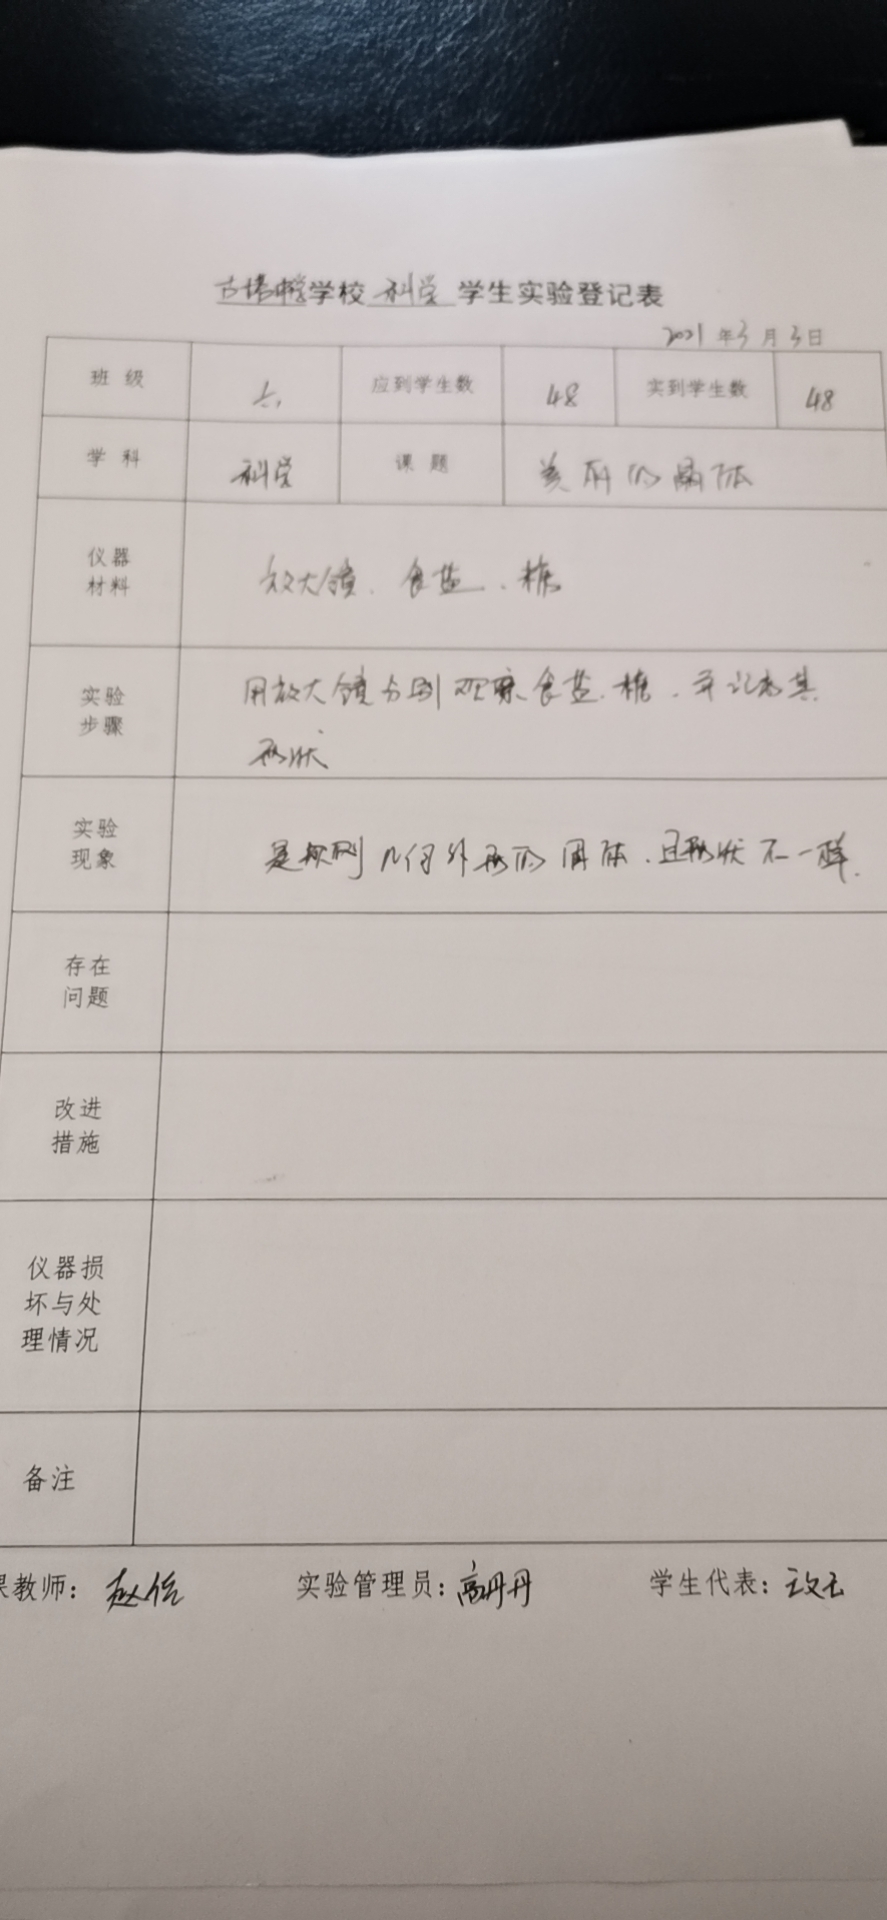 古塔中学学校 科学 学生实验登记表
2021年3月3日
班级 六 应到学生数 48 实到学生数 48
学科 科学 课题 美丽的晶体
仪器材料 放大镜、食盐、糖
实验步骤 用放大镜分别观察食盐、糖、并记录其
形状
实验现象 是规则几何外形的固体、且形状不一样.
存在问题
改进措施
仪器损坏与处理情况
备注
课教师: 赵 实验管理员:高丹丹 学生代表: